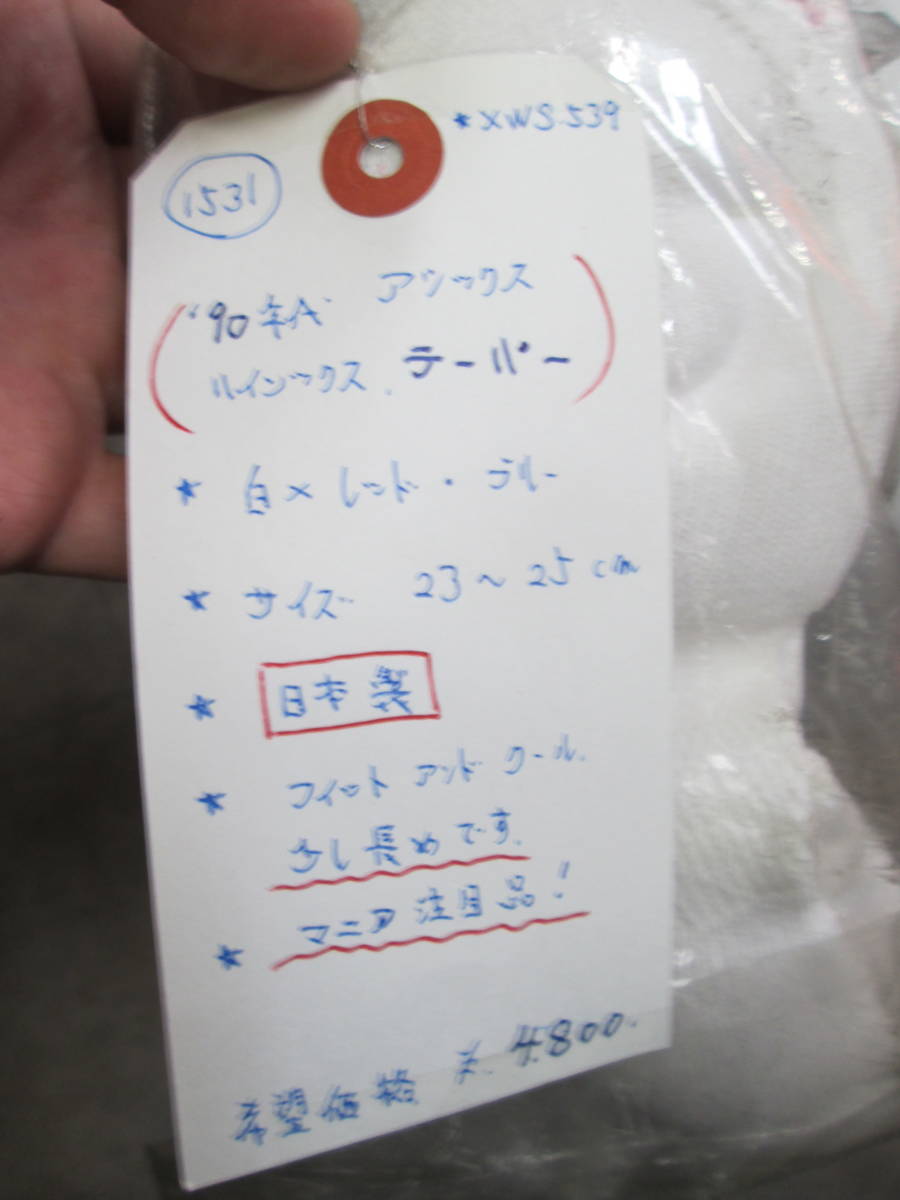 *XWS.539
1531
'90年代 アシックス
ルインックス. テーパー
★ 白×レッド・ブルー
★ サイズ 23〜25cm
★ 日本製
★ フィット アンド クール.
少し長めです.
★ マニア注目品!
希望価格 ¥.4.800.